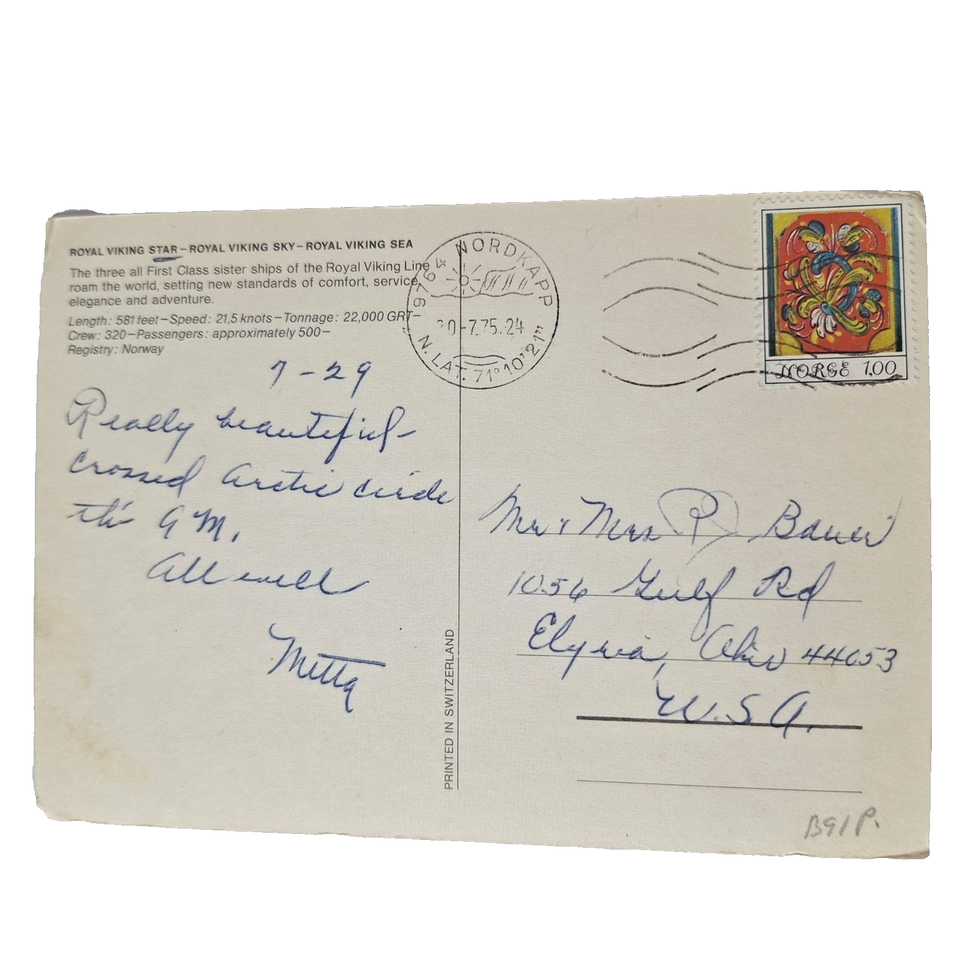 ROYAL VIKING STAR – ROYAL VIKING SKY – ROYAL VIKING SEA
The three all First Class sister ships of the Royal Viking Line
roam the world, setting new standards of comfort, service,
elegance and adventure.
Length: 581 feet – Speed: 21,5 knots – Tonnage: 22,000 GRT –
Crew: 320 – Passengers: approximately 500 –
Registry: Norway
7-29
Really beautiful -
crossed Arctic circle
this A M.
All well
PRINTED IN SWITZERLAND
9764 NORDKAPP
0-7.75.24
N. LAT. 71°10'21"
NORGE 1,00
Mr & Mrs R Bauer
1056 Gulf Rd
Elyria, Ohio 44053
U.S.A.
B91P.